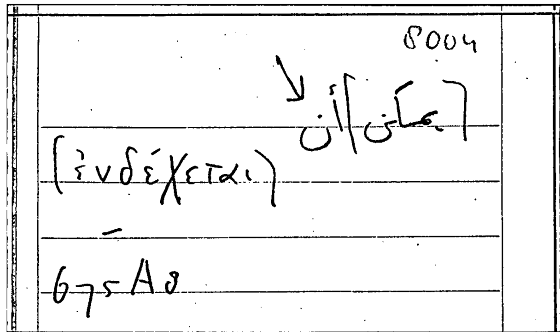 8004
[يمكن] أن
(ἐνδέχεται)
675A8